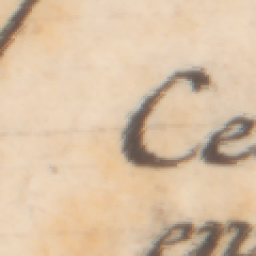 Ce
en